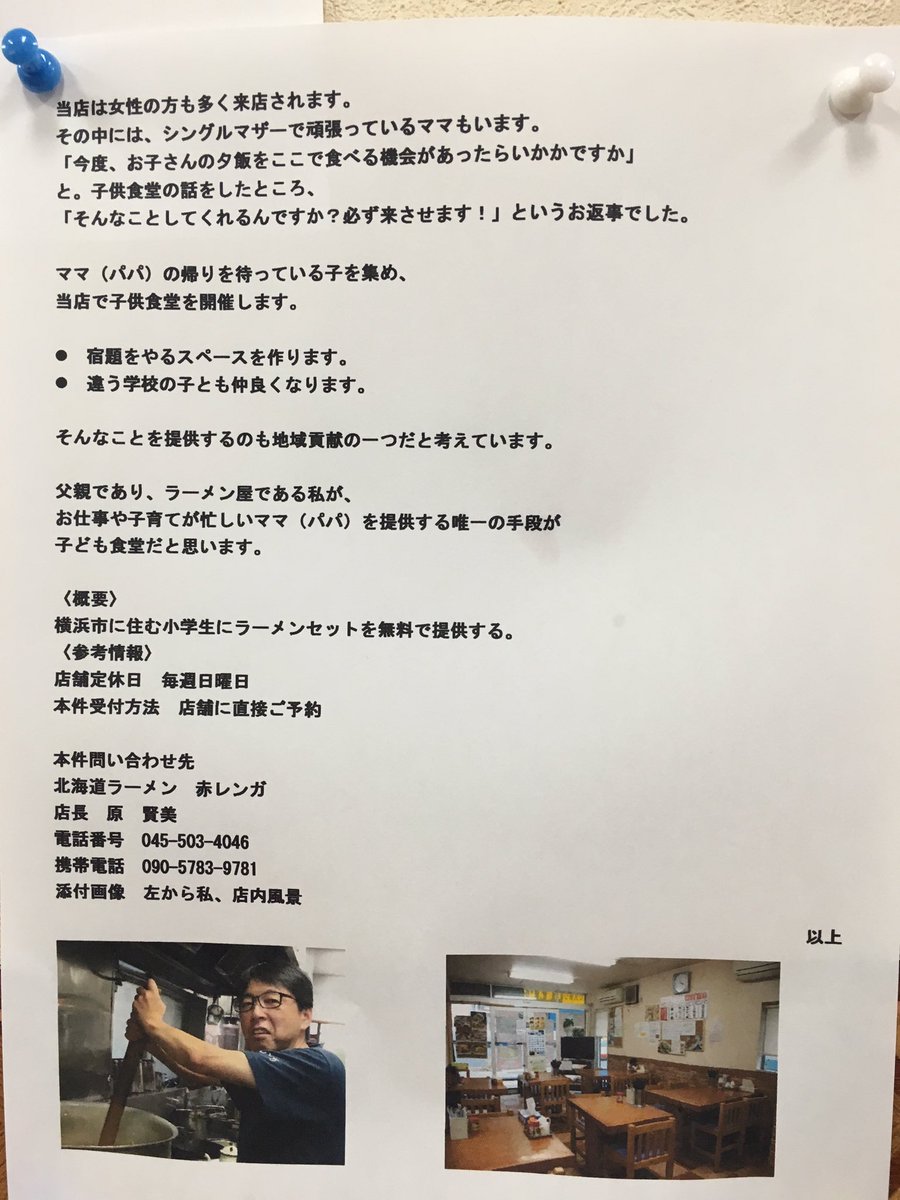 当店は女性の方も多く来店されます。
その中には、シングルマザーで頑張っているママもいます。
「今度、お子さんの夕飯をここで食べる機会があったらいかかですか」
と。子供食堂の話をしたところ、
「そんなことしてくれるんですか？必ず来させます！」というお返事でした。
ママ（パパ）の帰りを待っている子を集め、
当店で子供食堂を開催します。
● 宿題をやるスペースを作ります。
● 違う学校の子とも仲良くなります。
そんなことを提供するのも地域貢献の一つだと考えています。
父親であり、ラーメン屋である私が、
お仕事や子育てが忙しいママ（パパ）を提供する唯一の手段が
子ども食堂だと思います。
〈概要〉
横浜市に住む小学生にラーメンセットを無料で提供する。
〈参考情報〉
店舗定休日　毎週日曜日
本件受付方法　店舗に直接ご予約
本件問い合わせ先
北海道ラーメン　赤レンガ
店長　原　賢美
電話番号　045-503-4046
携帯電話　090-5783-9781
添付画像　左から私、店内風景
以上